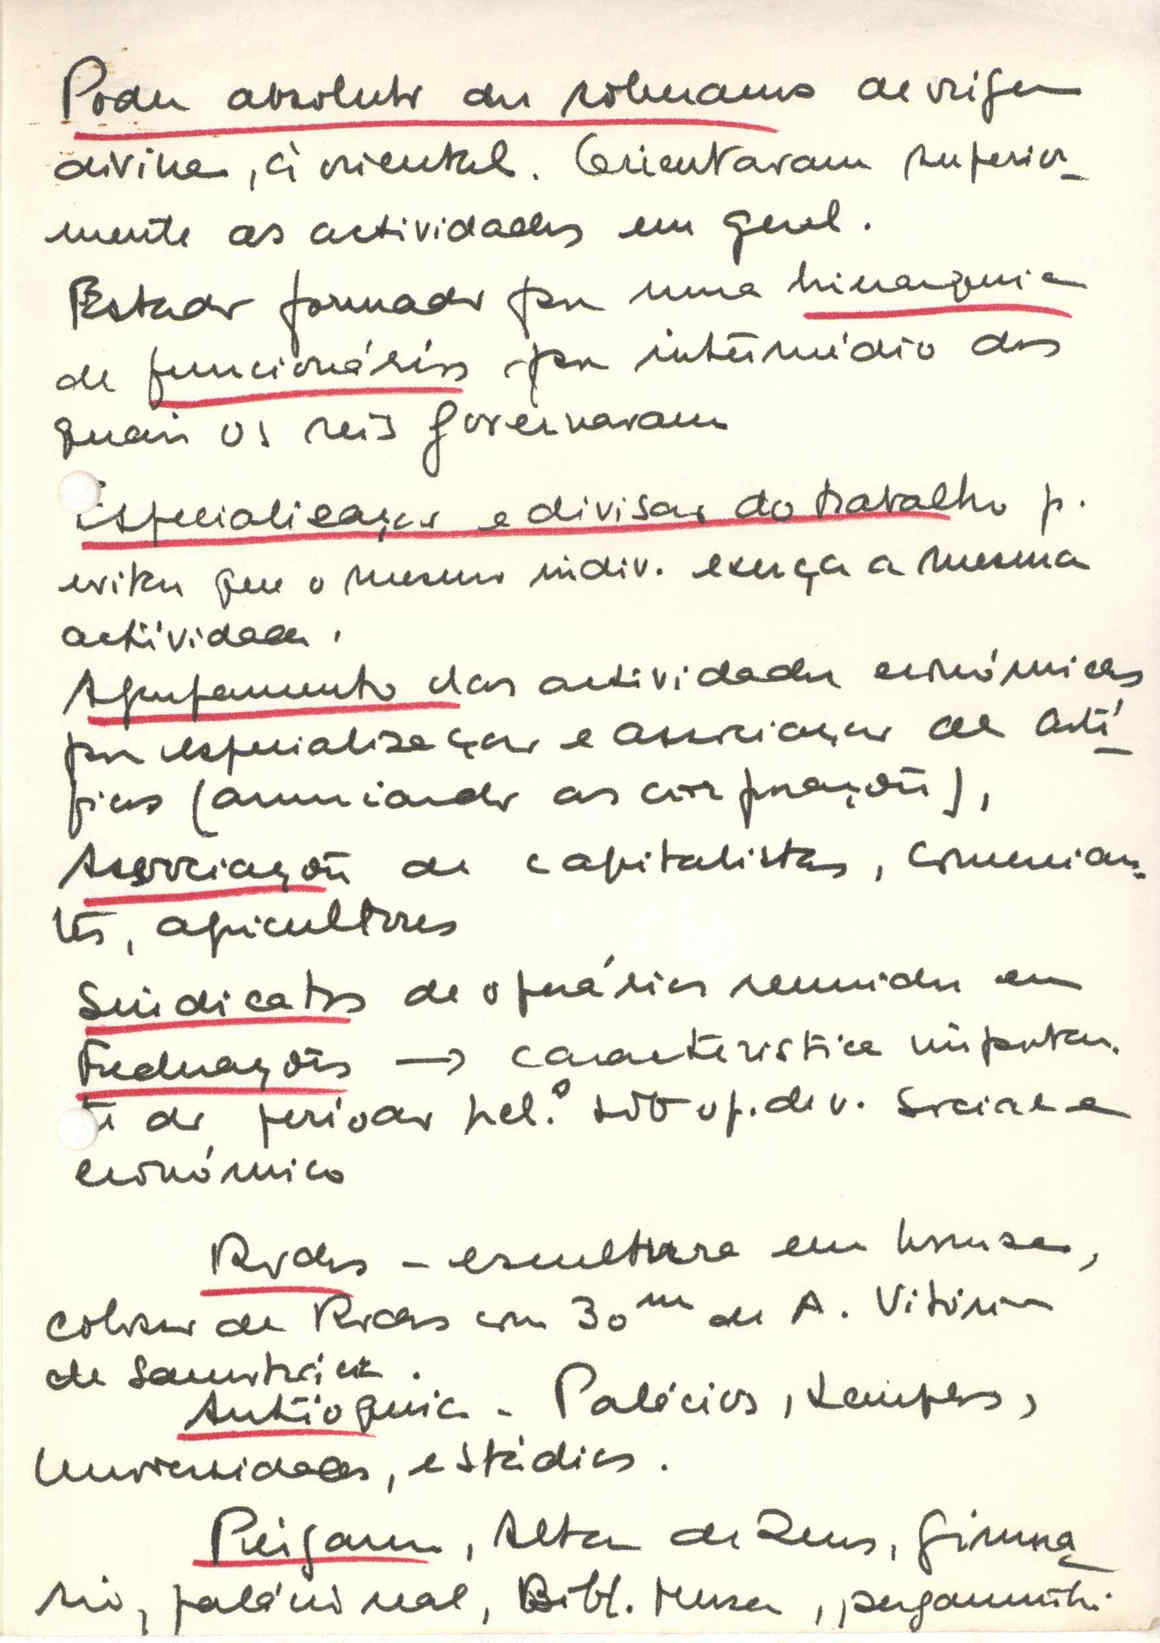 Poder absoluto dos soberanos de origem
divina, à oriental. Orientaram superior-
mente as actividades em geral.
Estado formado por uma hierarquia
de funcionários por intermédio dos
quais os reis governaram
Especialização e divisão do trabalho p.
evitar que o mesmo indiv. exerça a mesma
actividade.
Agrupamento das actividades económicas
por especialização e associação de artí-
fices (anunciando as corporações),
Associação de capitalistas, comercian-
tes, agricultores
Sindicatos de operários reunidos em
Federações → característica importan-
te do período hel.º sob o p. de v. social e
económico
Rodes - escultura em bronze,
colosso de Rodes com 30m de A. Vitória
de Samotrácia.
Antioquia - Palácios, templos,
Universidades, estádios.
Pérgamo, Altar de Zeus, gimná-
sio, palácio real, Bibl. Museu, pergaminho